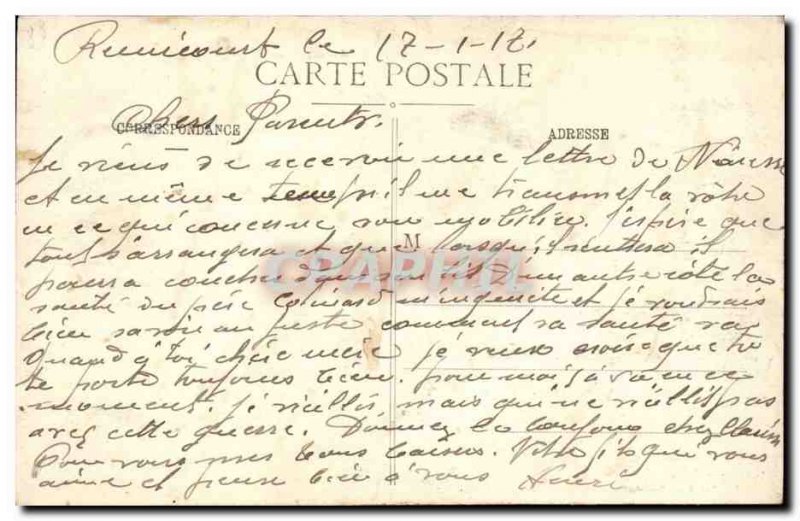 le 17-1-17
CARTE POSTALE
Chers Parents,
CORRESPONDANCE
ADRESSE
Je viens de recevoir une lettre de
et en même temps il me transmet la vôtre
en ce qui concerne son mobilier. J'espère que
tout s'arrangera et que lorsqu'il rentrera il
M
pourra coucher dans son lit. D'un autre côté la
santé du père m'inquiète et je voudrais
bien savoir au juste comment sa santé va
Quand à toi chère mère je veux croire que tu
te porte toujours bien. pour moi ça va en ce
moment. Je vieillis, mais qui ne vieillit pas
avec cette guerre. Donnez le bonjour chez
Pour vous mes bons baisers. Votre fils qui vous
aime et pense bien à vous Henri
CPAPHIL